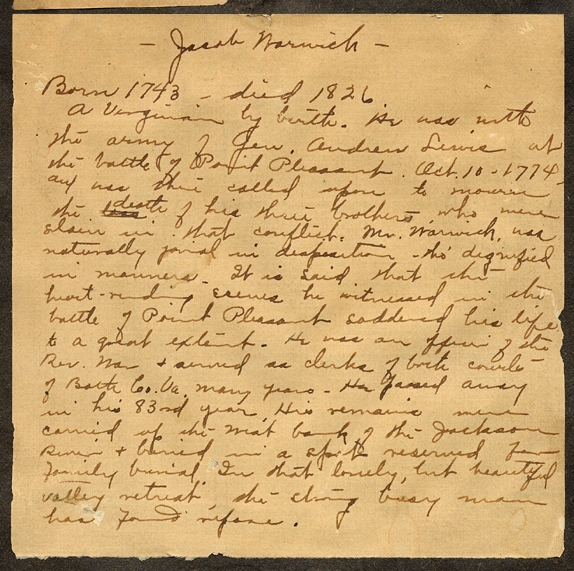 - Jacob Warwick -
Born 1743 - died 1826
A Virginian by birth. He was with
the army of Gen. Andrew Lewis at
the battle of Point Pleasant. Oct. 10 - 1774
and was there called upon to mourn
the loss death of his three brothers who were
slain in that conflict. Mr. Warwick, was
naturally jovial in disposition - tho' dignified
in manners. It is said that the
heart-rending scenes he witnessed in the
battle of Point Pleasant saddened his life
to a great extent. He was an officer of the
Rev. War + served as clerk of both courts
of Bath Co. Va. many years - He passed away
in his 83rd year. His remains were
carried up the west bank of the Jackson
River + buried in a spot reserved for
family burial. In that lonely, but beautiful
valley retreat, the strong busy man
has found repose.